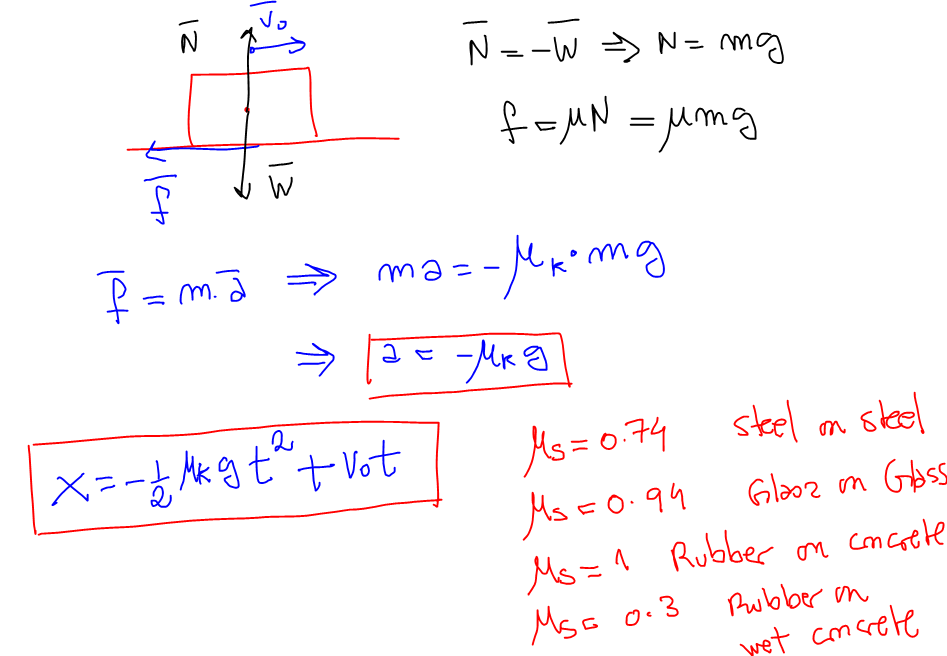 N̅ V̅₀
N̅ = -W̅ ⇒ N = mg
f = μN = μmg
f̅ W̅
f̅ = m.a̅ ⇒ ma = -μₖ·mg
⇒ a = -μₖg
x = -½ μₖ g t² + v₀t
μₛ = 0.74 steel on steel
μₛ = 0.94 Glass on Glass
μₛ = 1 Rubber on concrete
μₛ = 0.3 Rubber on
wet concrete